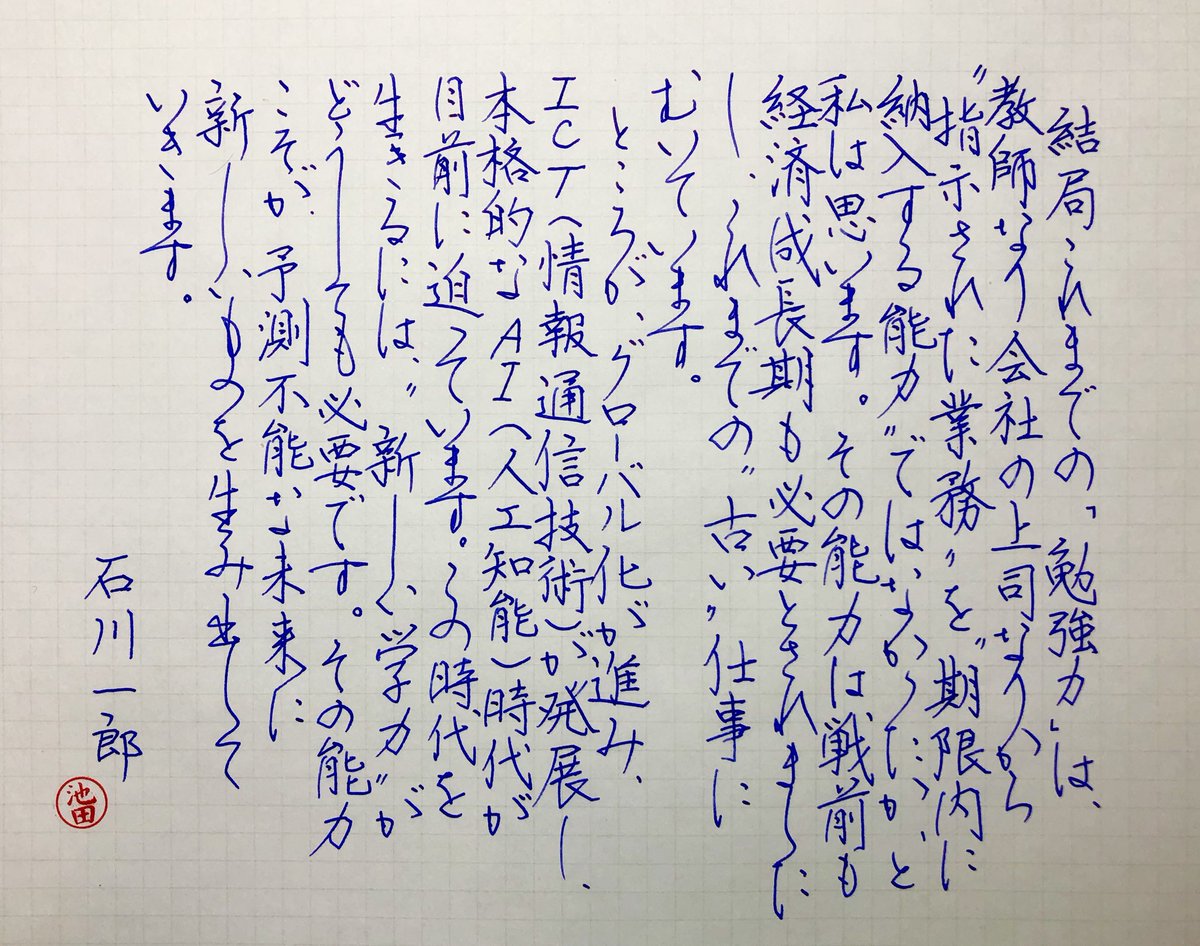 結局これまでの「勉強力」は、
教師なり会社の上司なりから
“指示された業務”を“期限内に
納入する能力”ではなかったかと
私は思います。その能力は戦前も
経済成長期も必要とされました
し、これまでの“古い”仕事に
むいています。
ところが、グローバル化が進み、
ICT(情報通信技術)が発展し、
本格的なAI(人工知能)時代が
目前に迫っています。この時代を
生きるには、“新しい学力”が
どうしても必要です。その能力
こそが予測不能な未来に
新しいものを生み出して
いきます。
石川一郎
池田